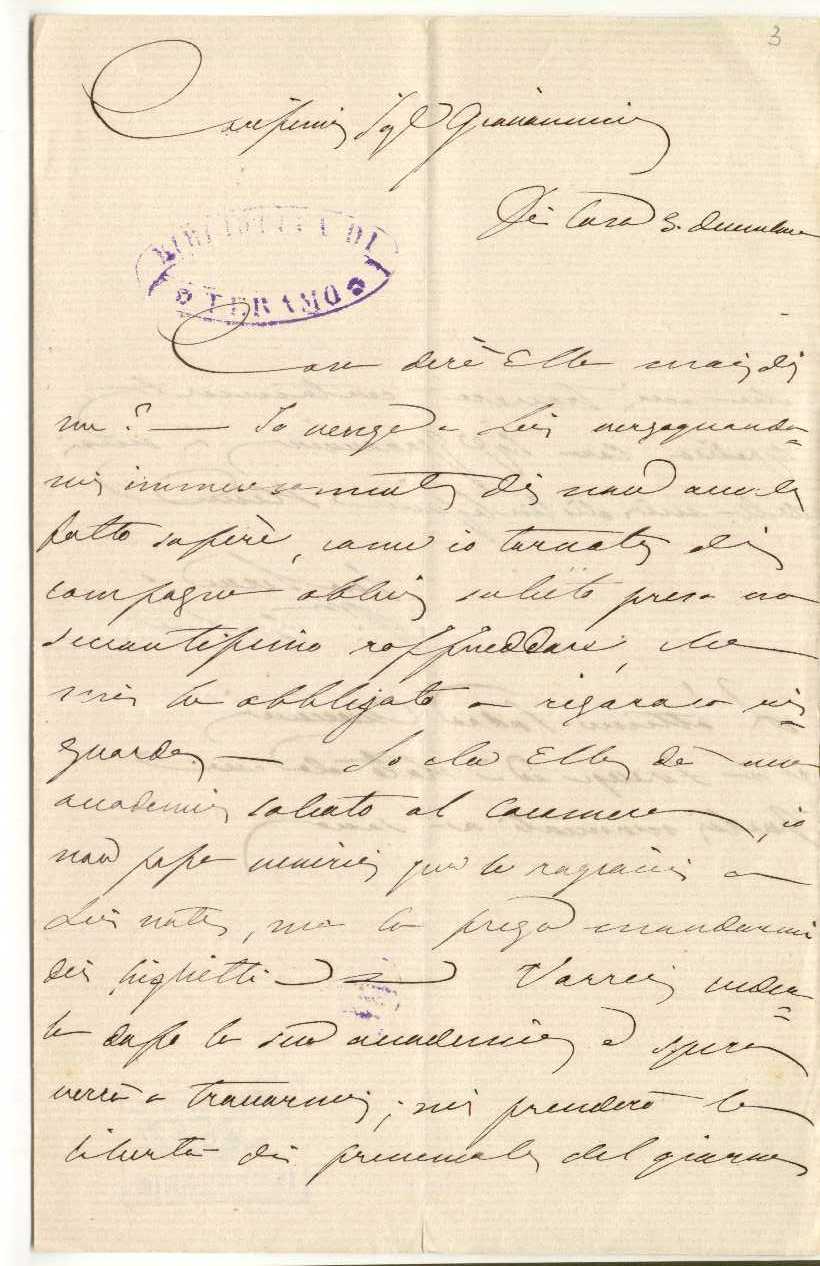 3
Carissimo Sigr Giannini
Di Casa 3. dicembre
BIBLIOTECA DI
TERAMO
Cosa dirà Ella mai di
me? — Io vengo a Lei vergognando=
mi immensamente di non averle
fatto sapere, come io tornata di
campagna abbia subito preso un
seccantissimo raffreddore, che
mi ha obbligato a rigoroso ri=
guardo, — So che Ella dà una
accademia sabato al Carmine, io
non posso venirci per le ragioni a
Lei note, ma la prego mandarmi
dei biglietti — Vorrei veder=
la dopo la sua accademia e spero
verrà a trovarmi; mi prenderò la
libertà di prevenirla del giorno